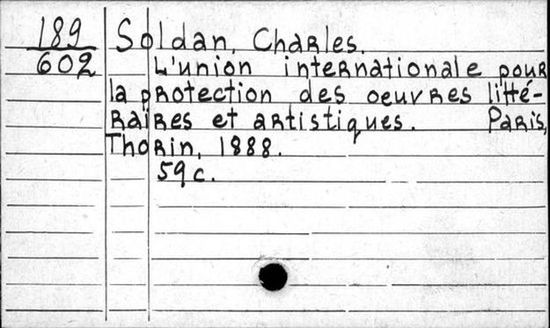 189 Soldan, Charles.
602 L'union internationale pour
la protection des oeuvres litté-
raires et artistiques. Paris,
Thorin, 1888.
59 c.